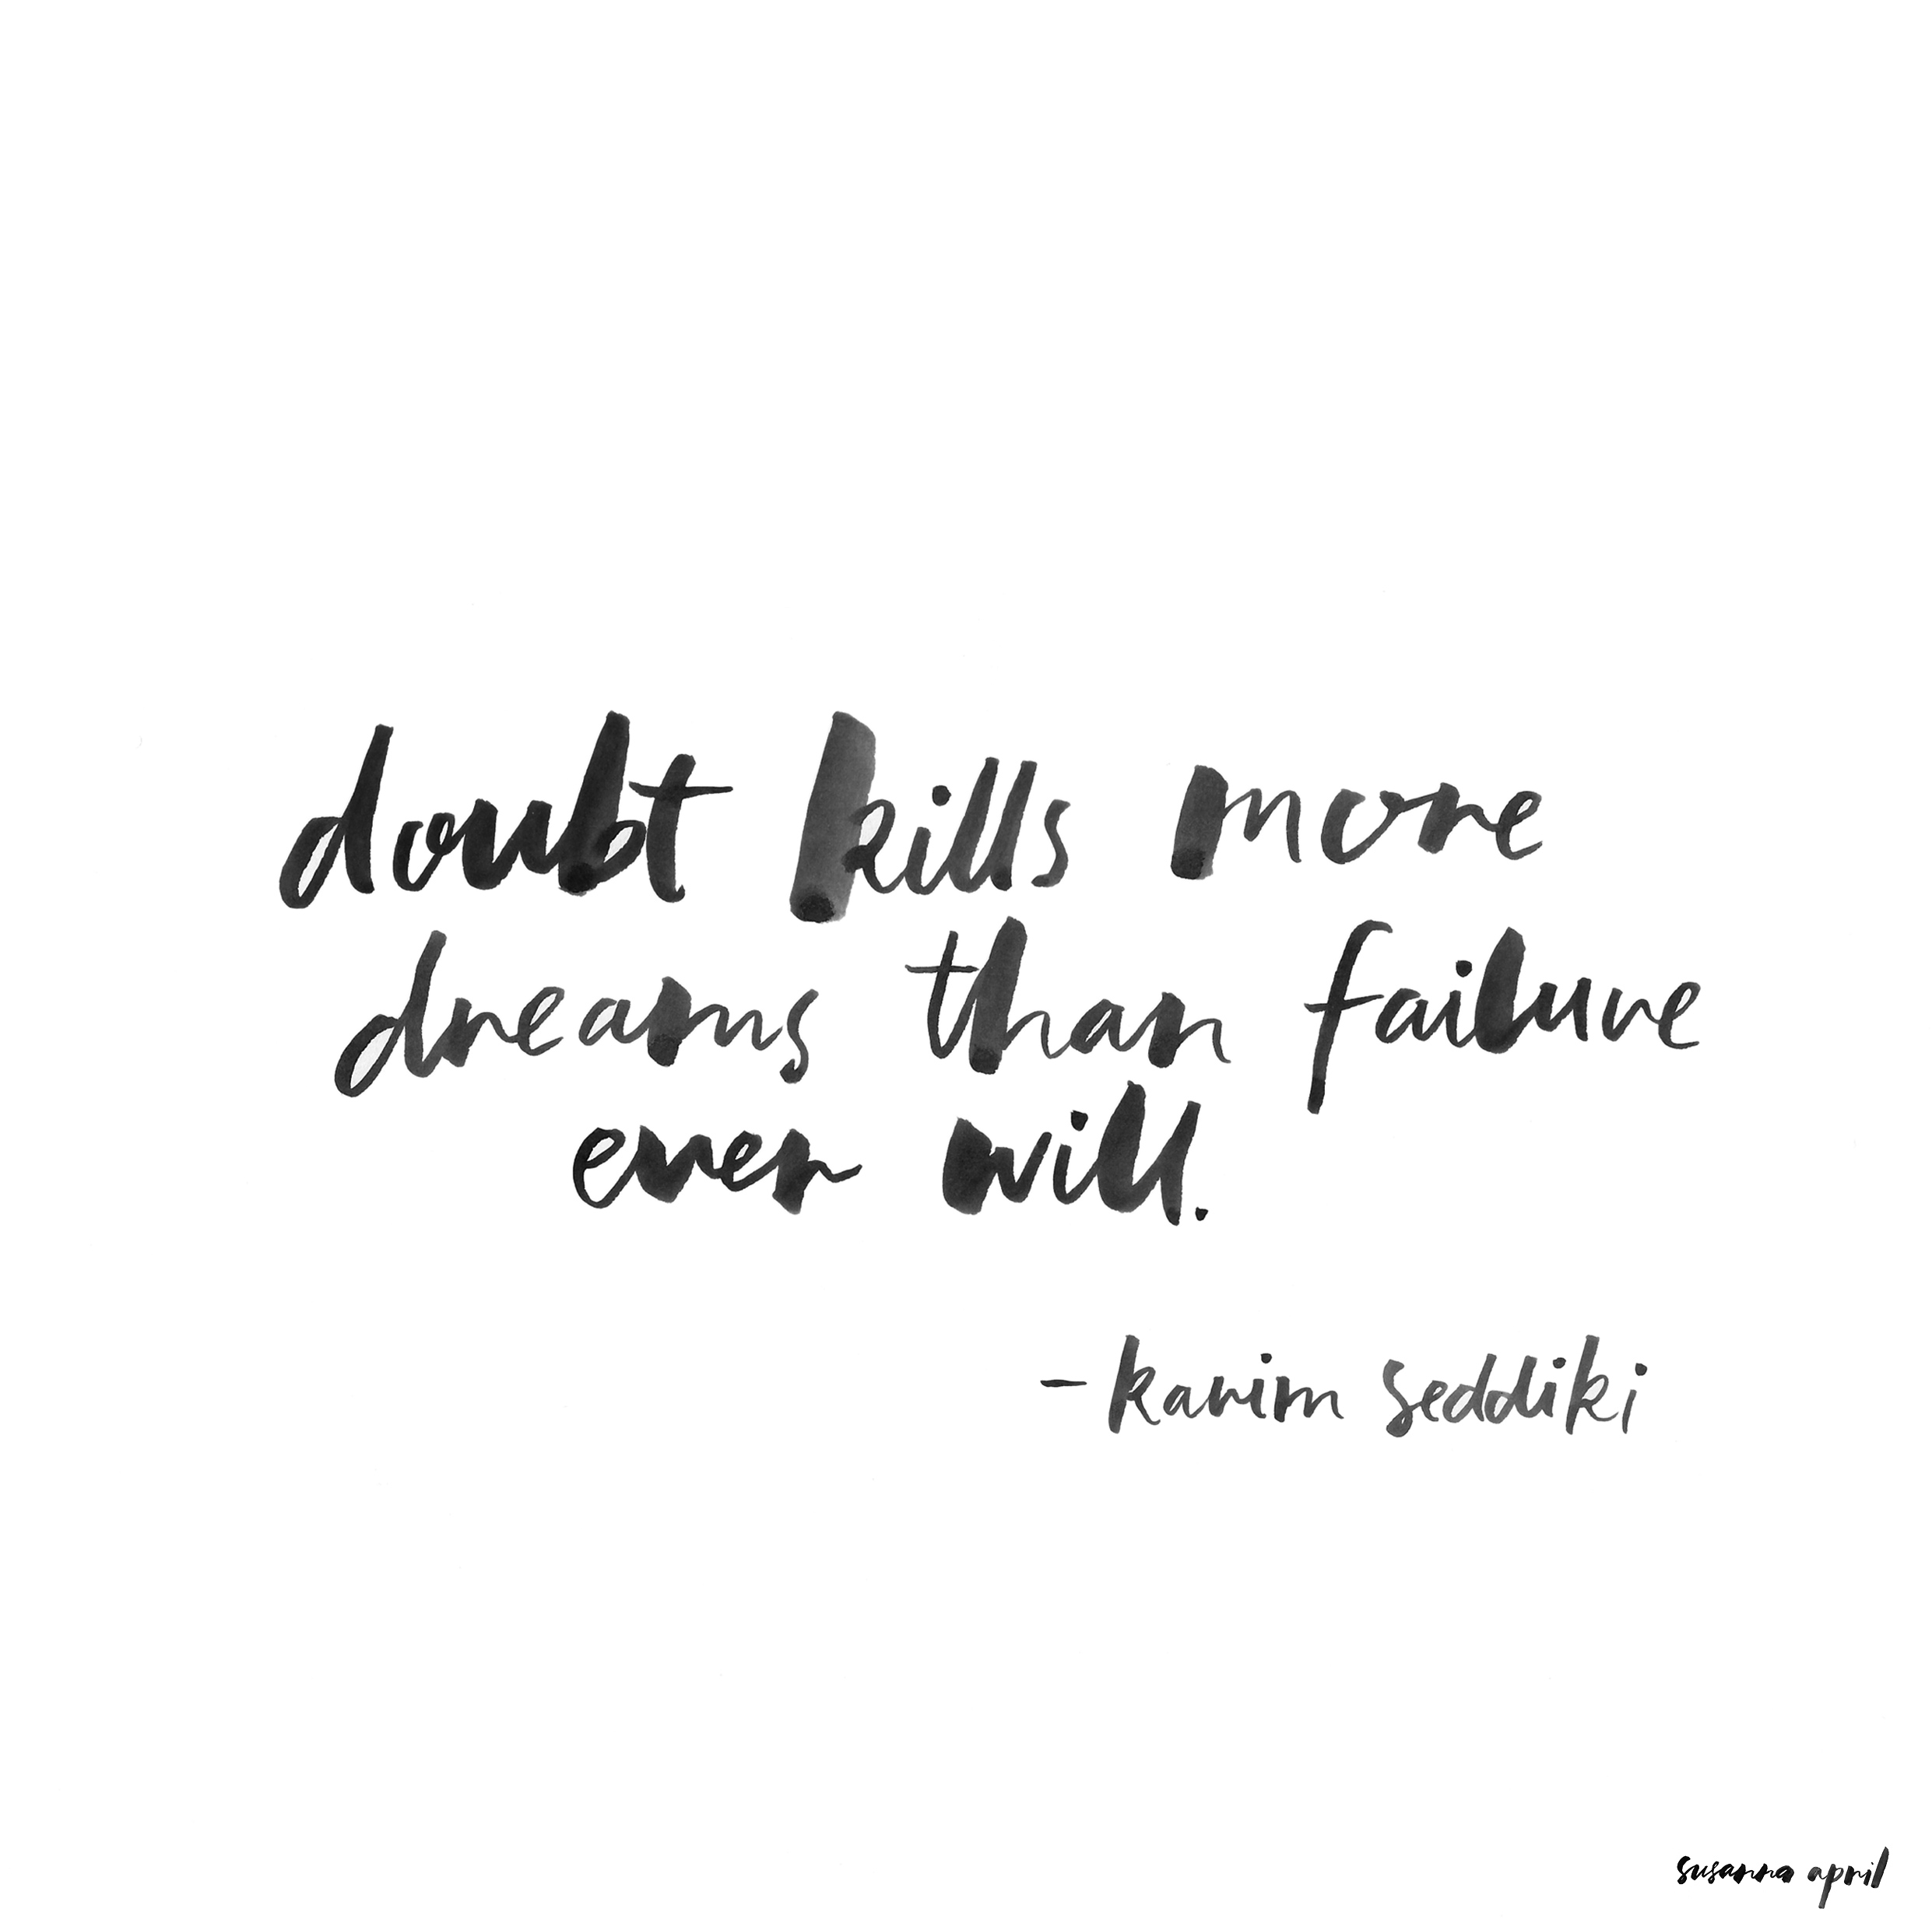 doubt kills more
dreams than failure
ever will.
- karim seddiki
susanna april